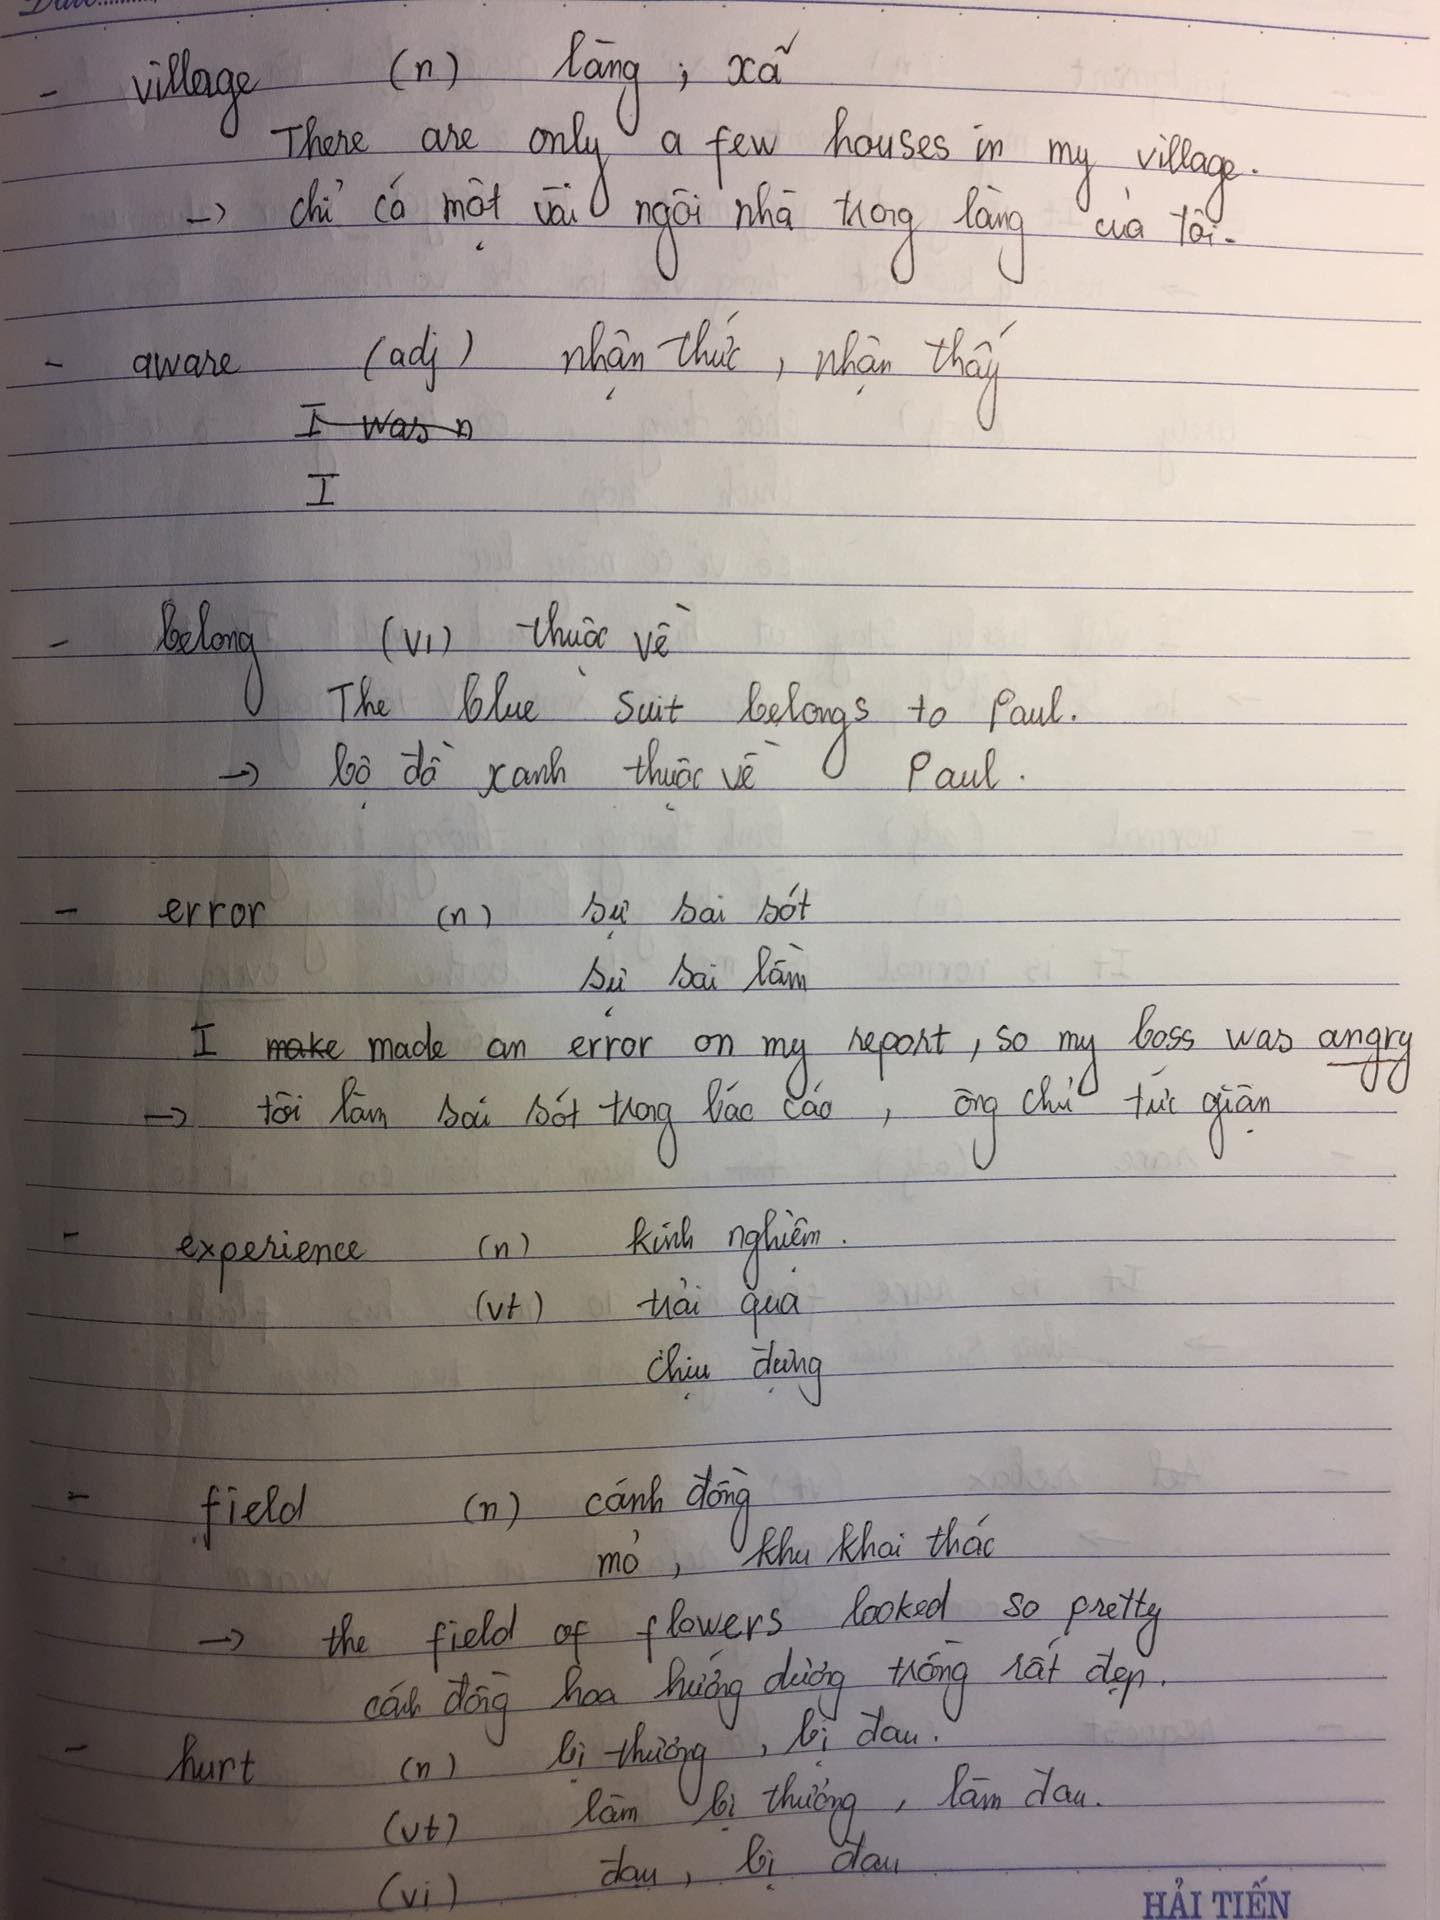 Date..........
- village (n) làng ; xã
There are only a few houses in my village.
-> chỉ có một vài ngôi nhà trong làng của tôi.
- aware (adj) nhận thức , nhận thấy
I was n
I
- belong (vi) thuộc về
The blue suit belongs to Paul.
-> bộ đồ xanh thuộc về Paul.
- error (n) sự sai sót
sự sai lầm
I make made an error on my report, so my boss was angry
-> tôi làm sai sót trong bác cáo , ông chủ tức giận
- experience (n) kinh nghiệm.
(vt) trải qua
chịu đựng
- field (n) cánh đồng
mỏ , khu khai thác
-> the field of flowers looked so pretty
cánh đồng hoa hướng dương trông rất đẹp.
- hurt (n) bị thương , bị đau.
(vt) làm bị thương , làm đau.
(vi) đau , bị đau
HẢI TIẾN